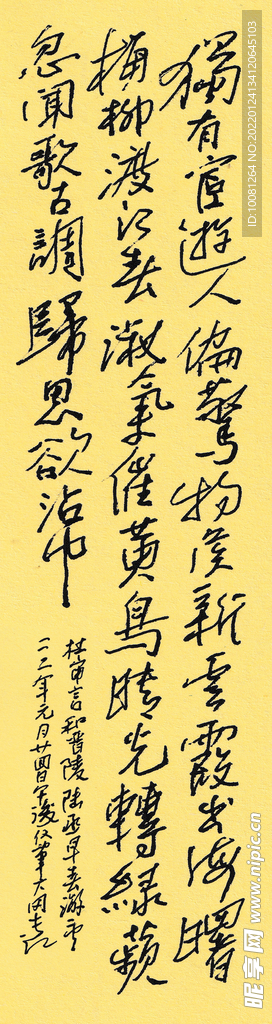 獨有宦遊人偏驚物候新雲霞出海曙
梅柳渡江春淑氣催黃鳥晴光轉綠蘋
忽聞歌古調歸思欲沾巾
杜審言和晉陵陸丞早春游望
年元月廿四日午後
ID:10081264 NO:20220124134120645103
昵享网 www.nipic.cn